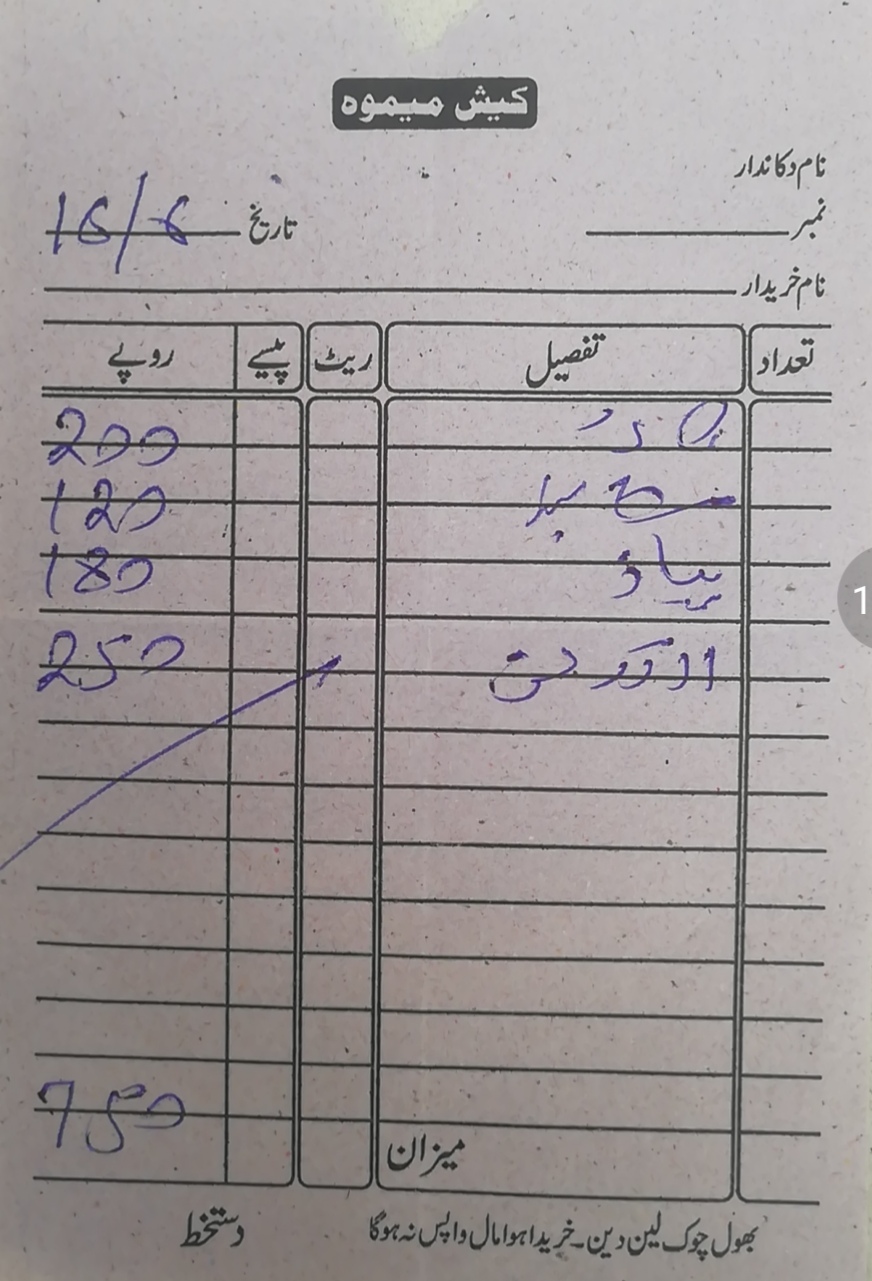 کیش میمو
نام دکاندار
نمبر تاریخ 16/6
نام خریدار
تعداد تفصیل ریٹ پیسے روپے
200
120
180
250
میزان 750
بھول چوک لین دین۔ خریدا ہوا مال واپس نہ ہوگا دستخط
1